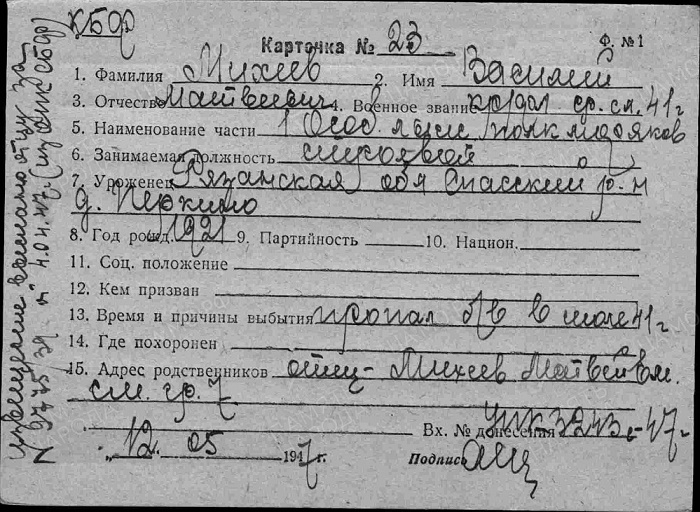 КБФ
Карточка № 23 Ф. №1
1. Фамилия Михеев 2. Имя Василий
3. Отчество Матвеевич 4. Военное звание кр. ср. сл. 41 г
5. Наименование части 1 Особ. полк
6. Занимаемая должность
7. Уроженец Рязанская обл Спасский р-н
д. Перкино
8. Год рожд. 1921 9. Партийность 10. Национ.
11. Соц. положение
12. Кем призван
13. Время и причины выбытия пропал б/в в 41 г
14. Где похоронен
15. Адрес родственников отец - Михеев Матвей
см. гр. 7
Вх. № донесения 3243 47 г
"12. 05 1947 г. Подпись
извещение выслано отцу за
N 9775/39 4.04.47 г.